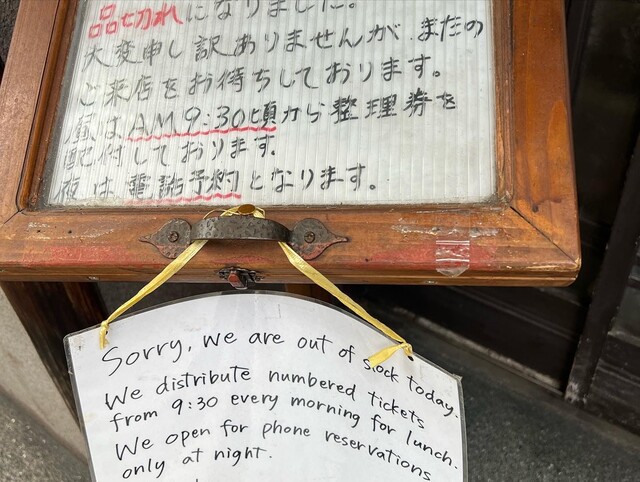 品切れになりました。
大変申し訳ありませんが、またの
ご来店をお待ちしております。
昼はAM9:30頃から整理券を
配付しております.
夜は電話予約となります。
Sorry, we are out of stock today.
We distribute numbered tickets
from 9:30 every morning for lunch.
We open for phone reservations
only at night.